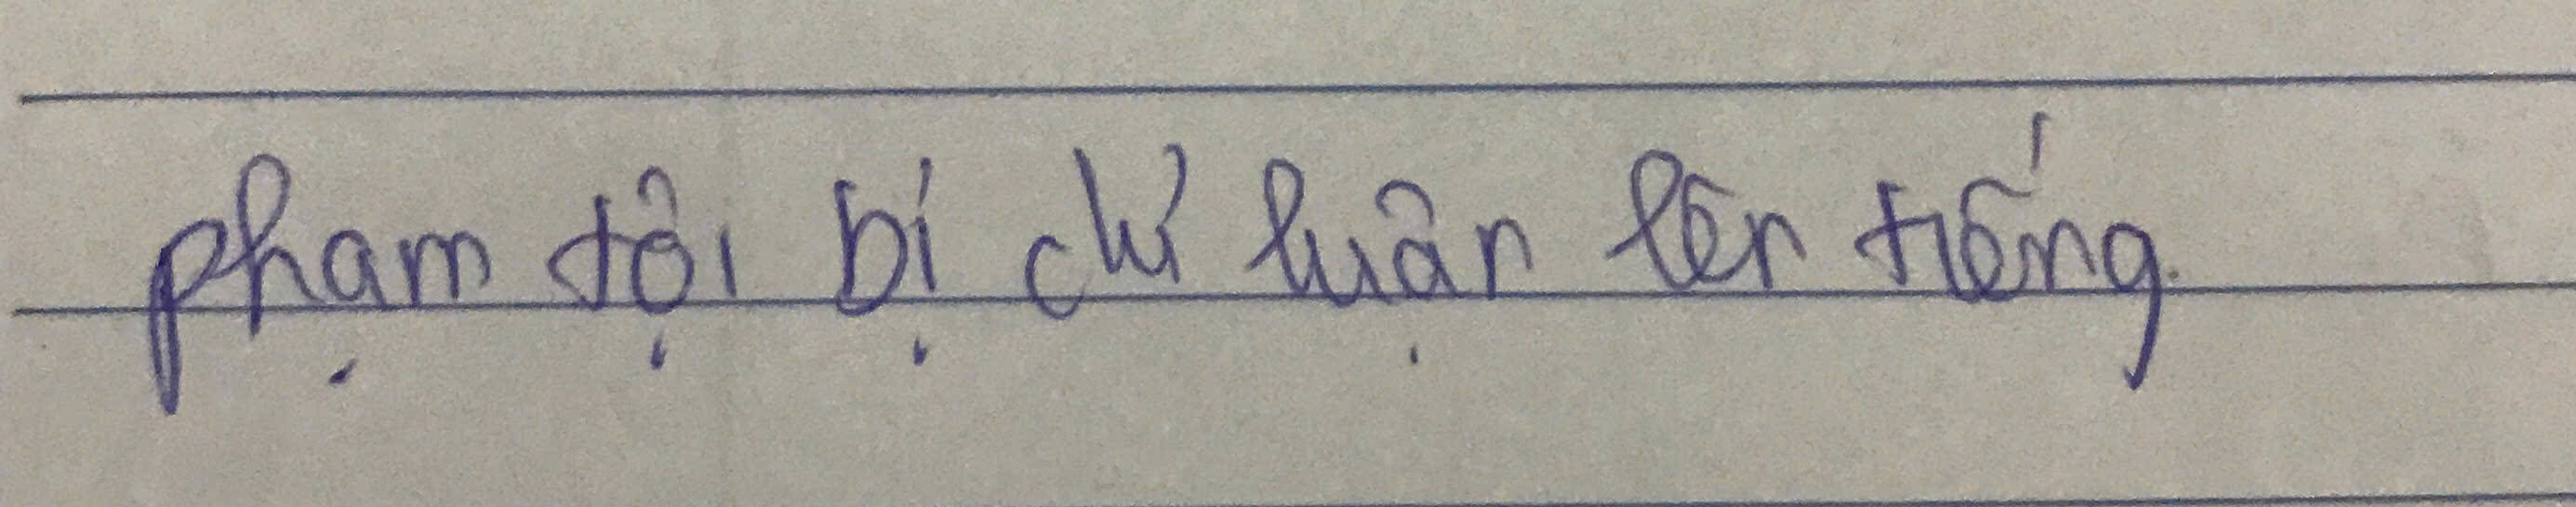 phạm tội bị chỉ luận lên tiếng.